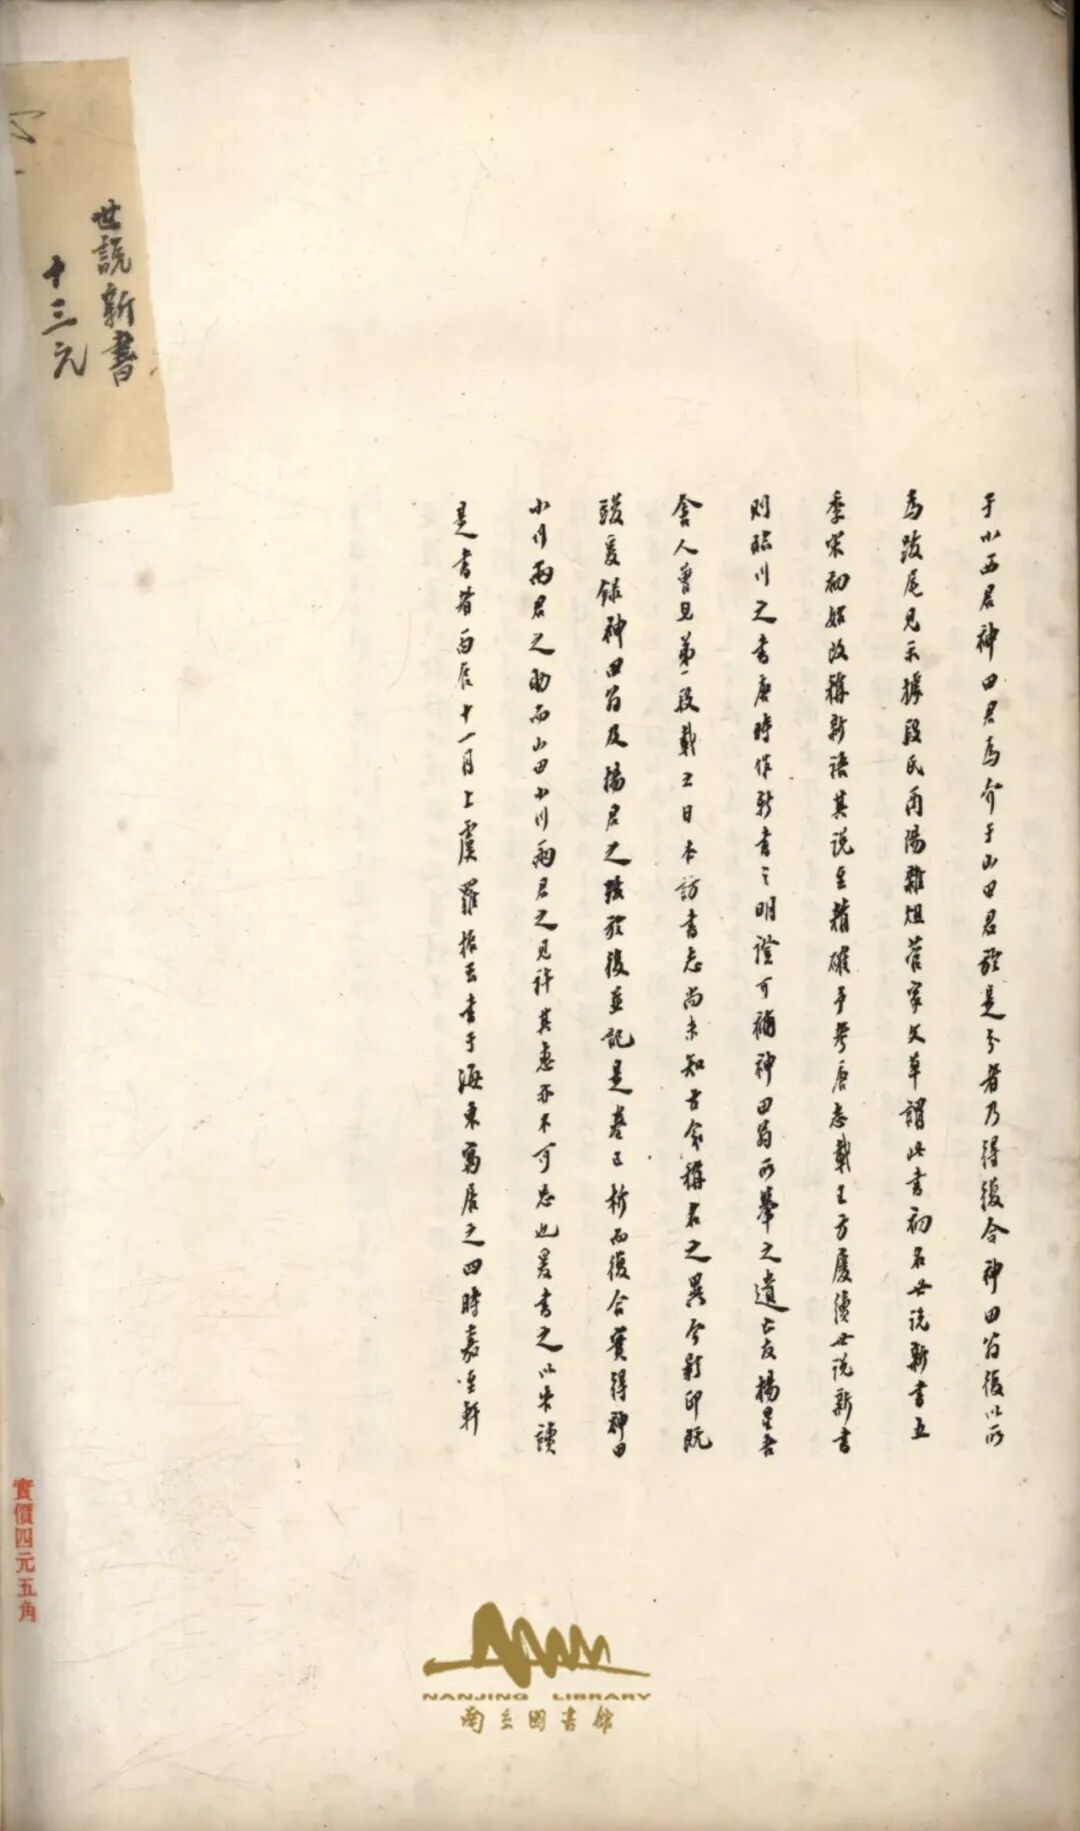 于小西君神田君為介于山田君於是分者乃得復合神田翁復以所
為跋尾見示據段氏酉陽雜俎菅家文草謂此書初名世說新書五
季宋初始改稱新語其說至精確予考唐志載王方慶續世說新書
則臨川之書唐時作新書之明證可補神田翁所舉之遺亡友楊星吾
舍人曾見第一段載之日本訪書志尚未知古今稱名之異今影印既
竣爰錄神田翁及楊君之跋於後並記是卷已析而復合實得神田
小川兩君之助而山田小川兩君之見許其惠亦不可忘也爰書之以告讀
是書者丙辰十一月上虞羅振玉書于海東寓居之四時嘉至軒
世說新書
十三元
實價四元五角
NANJING LIBRARY
南京圖書館